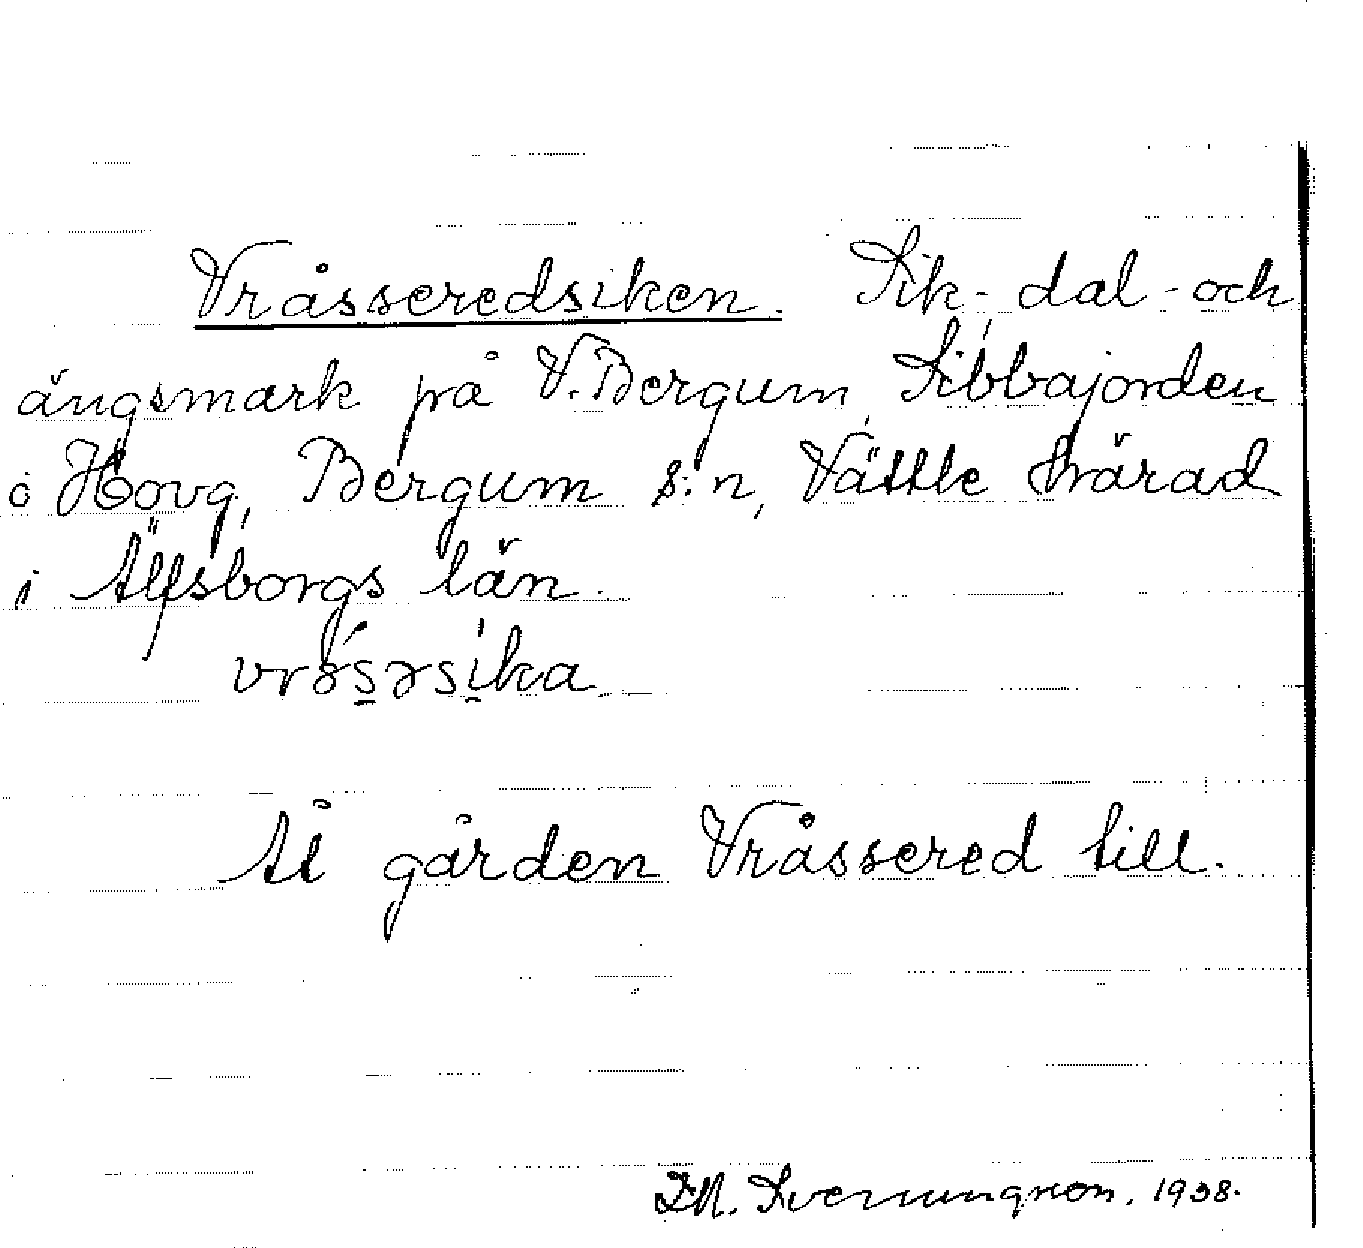 Vråsseredsiken. Sik-, dal- och
ängsmark på V. Bergum, Sibbajorden
o Hövg, Bergum s:n, Vättle härad
i Älfsborgs län.
At gården Vråssered till.
Svenungson. 1938.